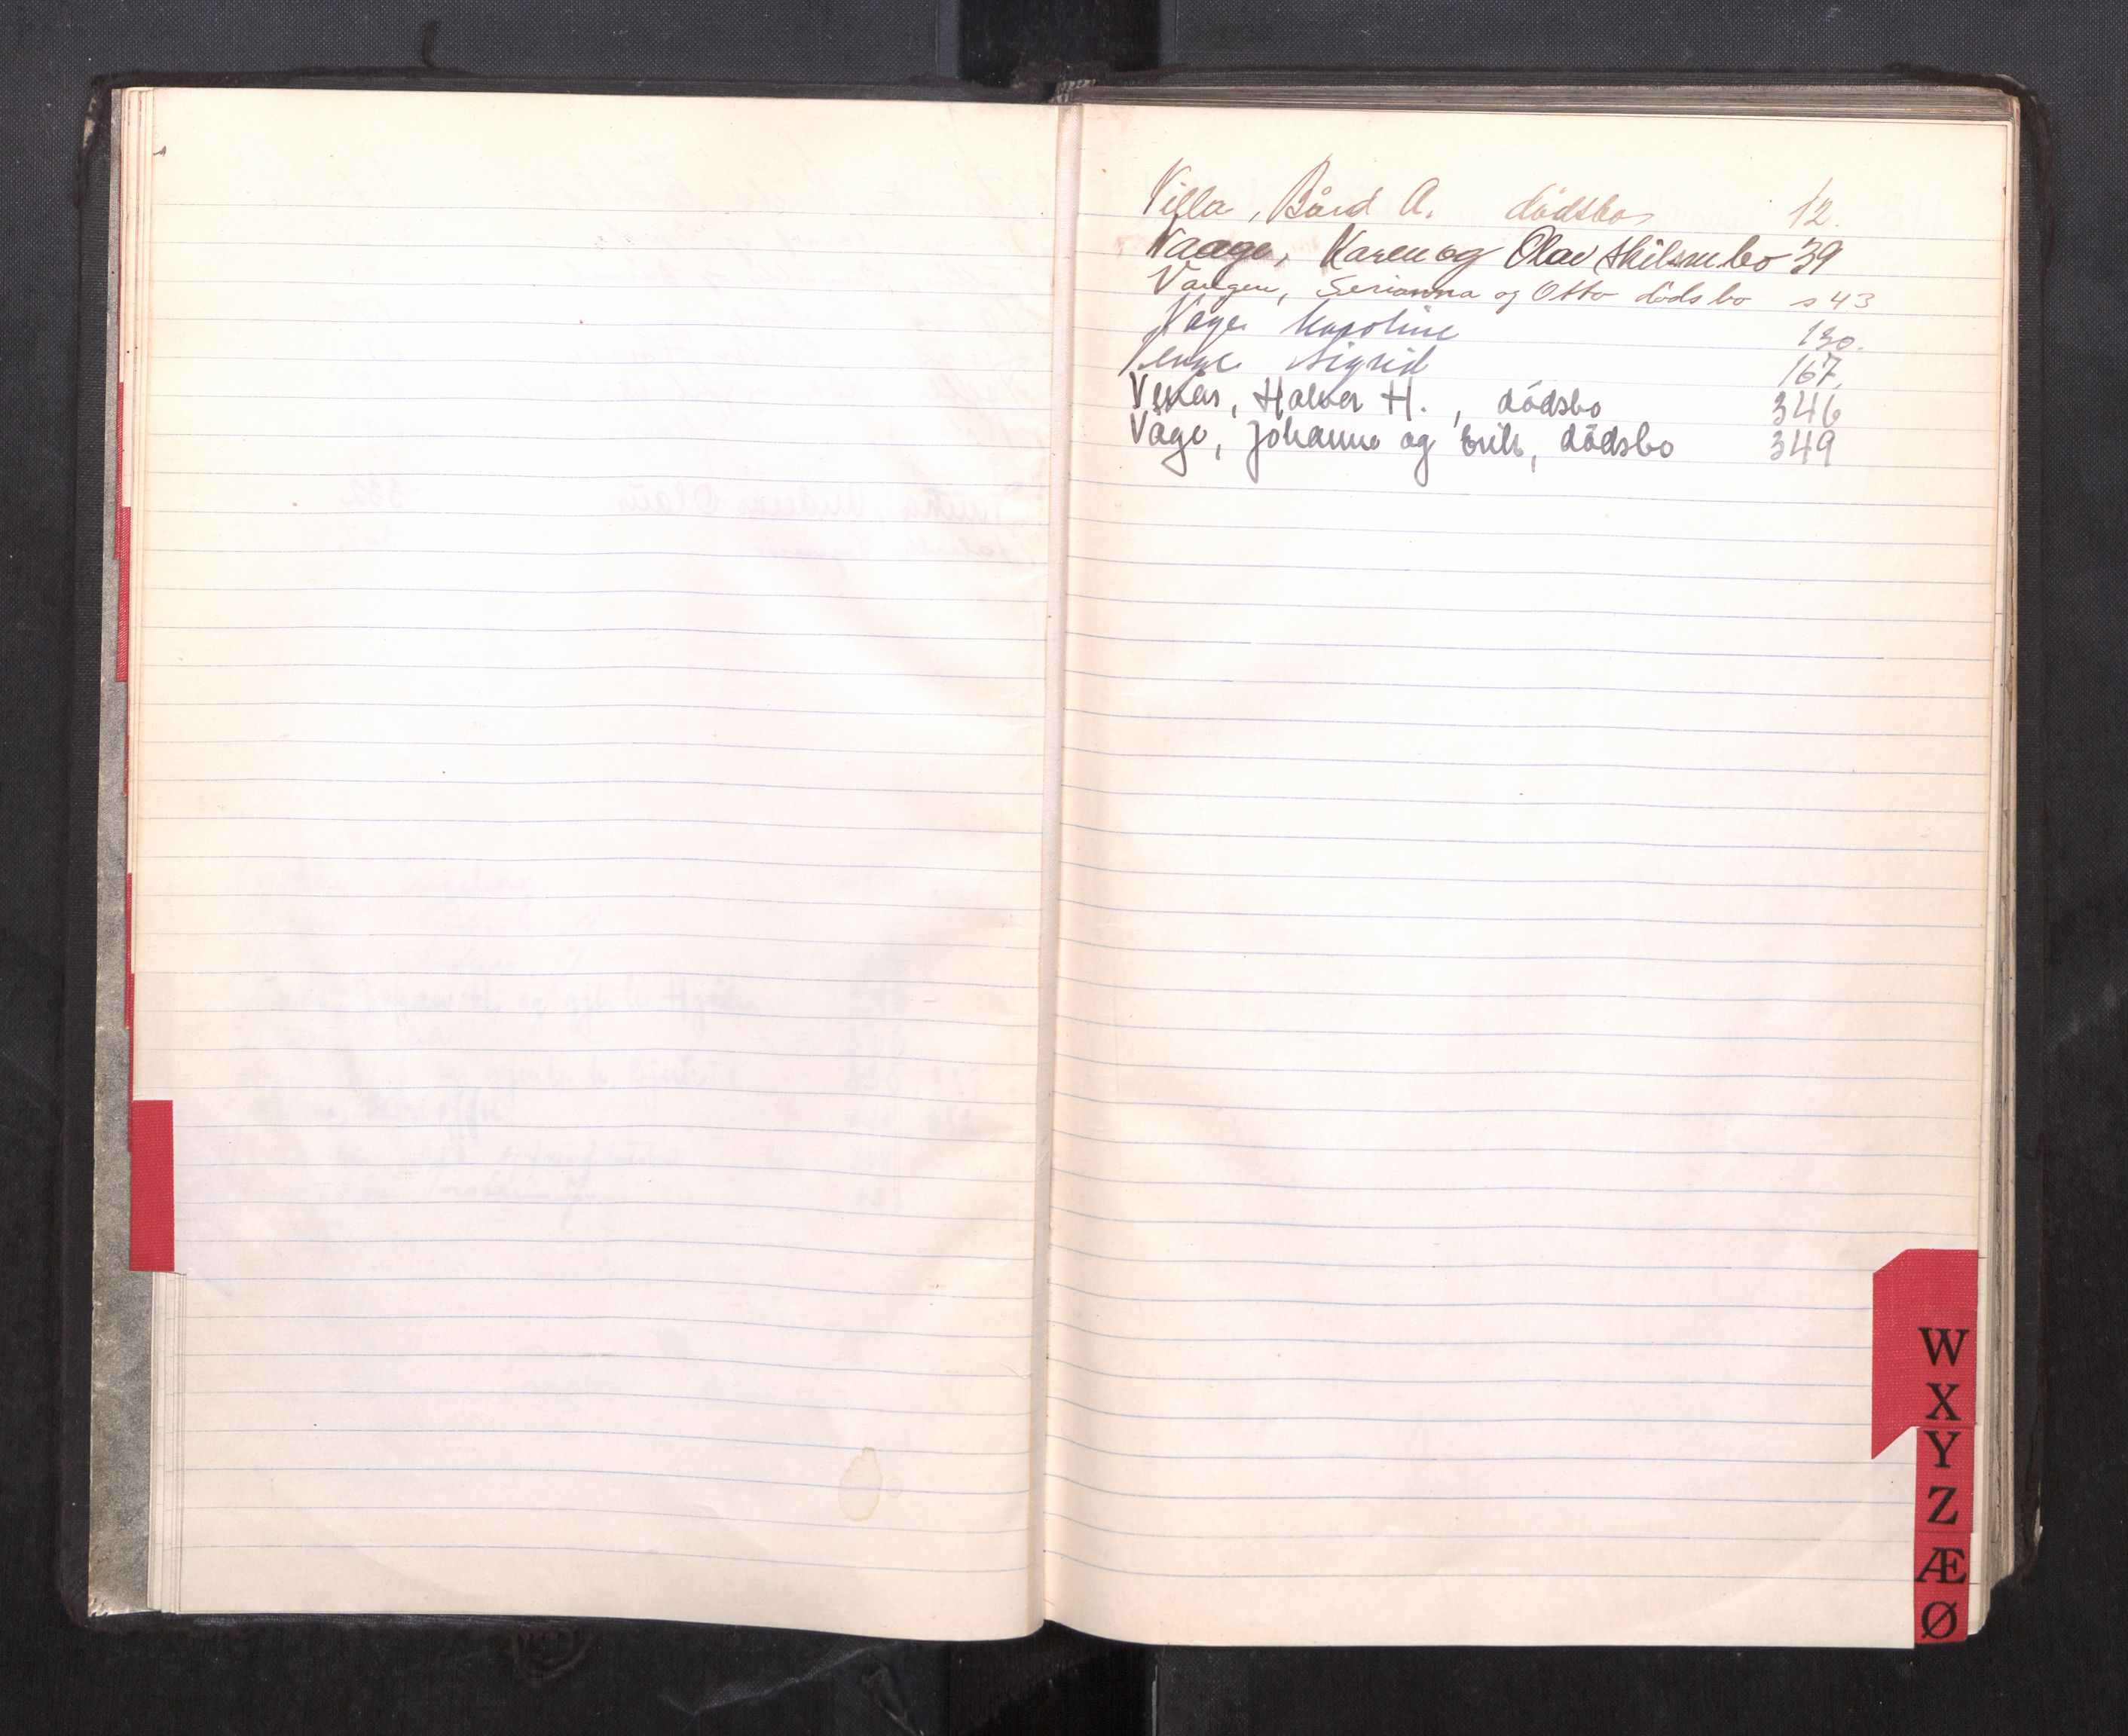 Villa, Bård A. dödsbo 12.
Vaage, Karen og Olav skilsm.bo 39
Vangen, Serianna og Otto dödsbo s 43
Våge Karoline 130.
Venge Sigrid 167.
Vekås, Halvor H., dödsbo 346
Våge, Johanne og Erik, dödsbo 349
W
X
Y
Z
Æ
Ø